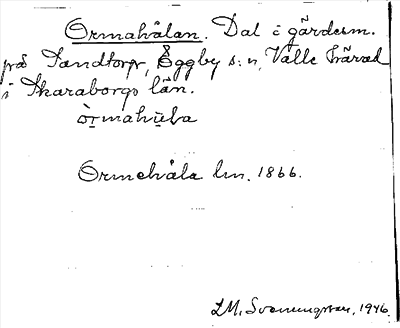 Ormahålan. Dal i gärdesm.
på Sandtorp, Eggby s:n, Valle härad
i Skaraborgs län.
òrmahu̱la
Ormehåla lm. 1866.
LM. Svenungsson, 1946.